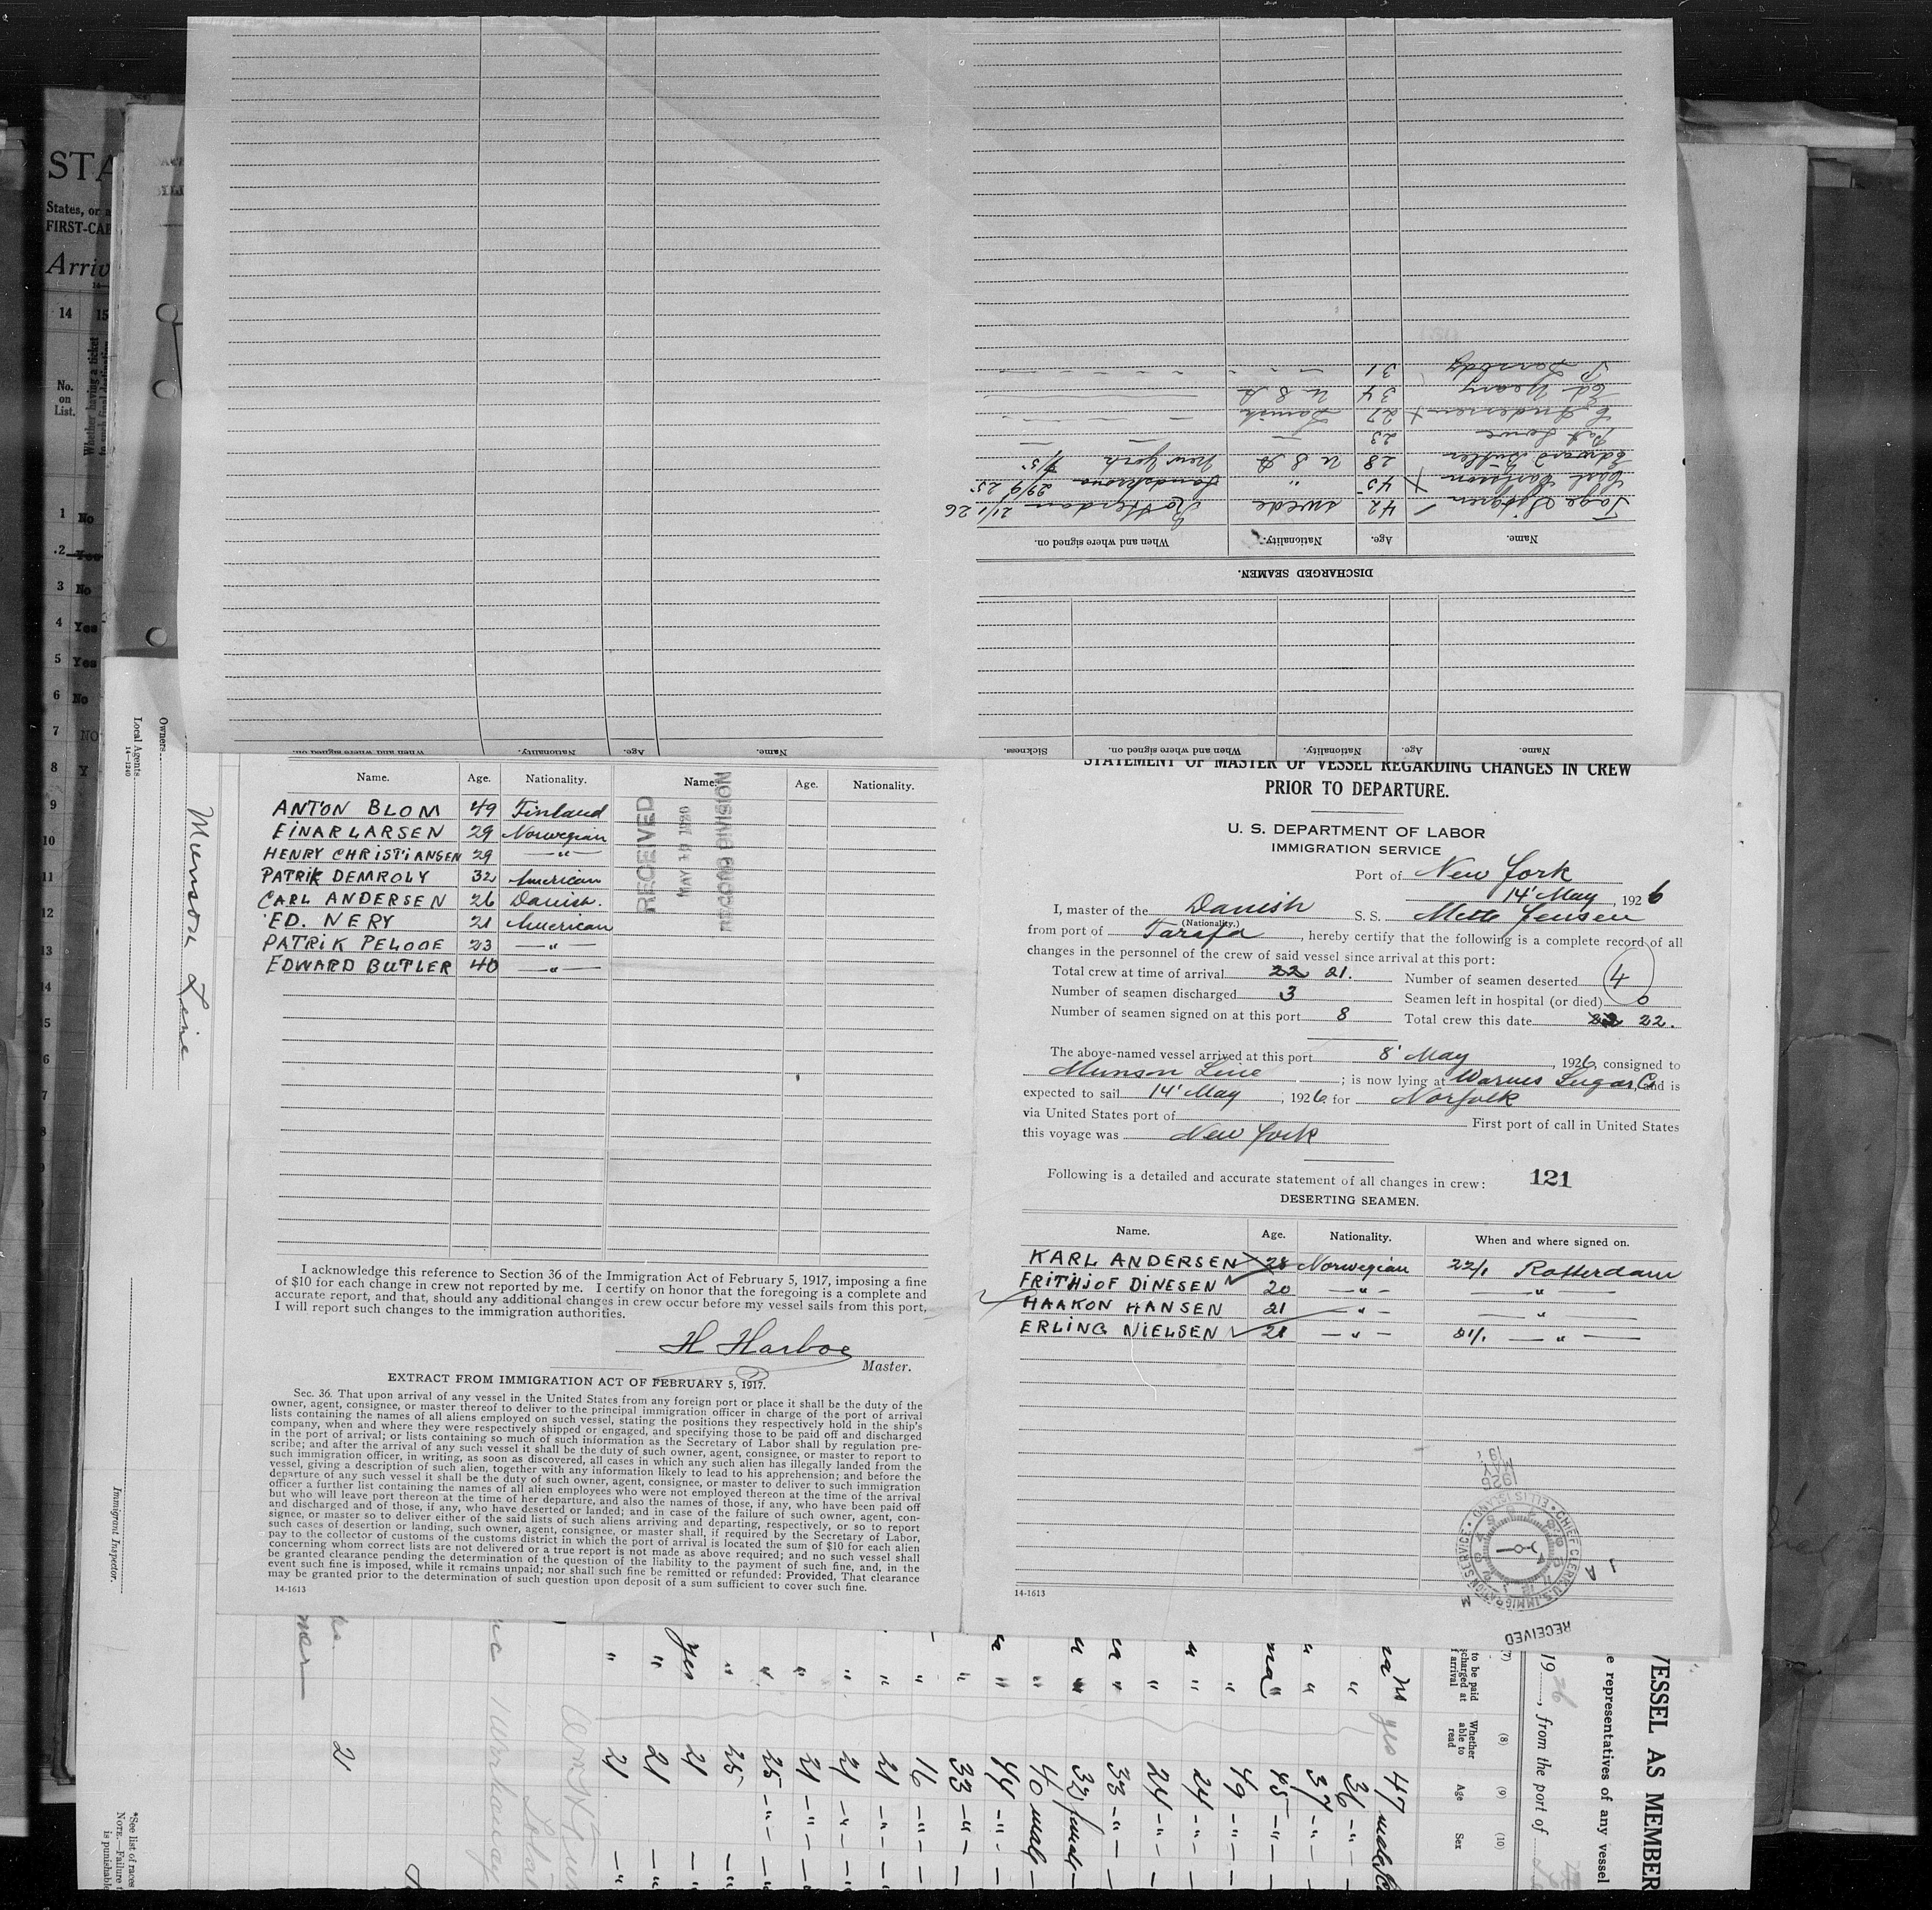 STATEMENT OF MASTER OF VESSEL REGARDING CHANGES IN CREW
PRIOR TO DEPARTURE.
U. S. DEPARTMENT OF LABOR
IMMIGRATION SERVICE
Port of New York
14' May, 1926
I, master of the Danish S. S. Mette Jensen
(Nationality.)
from port of Tarafa, hereby certify that the following is a complete record of all
changes in the personnel of the crew of said vessel since arrival at this port:
Total crew at time of arrival 22 21. Number of seamen deserted 4
Number of seamen discharged 3 Seamen left in hospital (or died) 0
Number of seamen signed on at this port 8 Total crew this date 22 22.
The above-named vessel arrived at this port 8' May, 1926, consigned to
Munson Line; is now lying at Warnes Sugar Co, and is
expected to sail 14' May, 1926 for Norfolk
via United States port of First port of call in United States
this voyage was New York
Following is a detailed and accurate statement of all changes in crew: 121
DESERTING SEAMEN.
Name. Age. Nationality. When and where signed on.
KARL ANDERSEN 28 Norwegian 22/1 Rotterdam
FRITHJOF DINESEN 20 — " — — " —
HAAKON HANSEN 21 — " — — " —
ERLING NIELSEN 21 — " — 21/1 — " —
14-1613
RECEIVED
CHIEF CLERK U.S. IMMIGRATION SERVICE ELLIS ISLAND
MAY
1926
Name. Age. Nationality. Name. Age. Nationality.
ANTON BLOM 49 Finland
EINAR LARSEN 29 Norwegian
HENRY CHRISTIANSEN 29 — " —
PATRIK DEMROLY 32 American
CARL ANDERSEN 26 Danish.
ED. NERY 21 American
PATRIK PELOOE 23 — " —
EDWARD BUTLER 40 — " —
RECEIVED
RECORD DIVISION
I acknowledge this reference to Section 36 of the Immigration Act of February 5, 1917, imposing a fine
of $10 for each change in crew not reported by me. I certify on honor that the foregoing is a complete and
accurate report, and that, should any additional changes in crew occur before my vessel sails from this port,
I will report such changes to the immigration authorities.
H Harboe
Master.
EXTRACT FROM IMMIGRATION ACT OF FEBRUARY 5, 1917.
Sec. 36. That upon arrival of any vessel in the United States from any foreign port or place it shall be the duty of the
owner, agent, consignee, or master thereof to deliver to the principal immigration officer in charge of the port of arrival
lists containing the names of all aliens employed on such vessel, stating the positions they respectively hold in the ship's
company, when and where they were respectively shipped or engaged, and specifying those to be paid off and discharged
in the port of arrival; or lists containing so much of such information as the Secretary of Labor shall by regulation pre-
scribe; and after the arrival of any such vessel it shall be the duty of such owner, agent, consignee, or master to report to
such immigration officer, in writing, as soon as discovered, all cases in which any such alien has illegally landed from the
vessel, giving a description of such alien, together with any information likely to lead to his apprehension; and before the
departure of any such vessel it shall be the duty of such owner, agent, consignee, or master to deliver to such immigration
officer a further list containing the names of all alien employees who were not employed thereon at the time of the arrival
but who will leave port thereon at the time of her departure, and also the names of those, if any, who have been paid off
and discharged and of those, if any, who have deserted or landed; and in case of the failure of such owner, agent, con-
signee, or master so to deliver either of the said lists of such aliens arriving and departing, respectively, or so to report
such cases of desertion or landing, such owner, agent, consignee, or master shall, if required by the Secretary of Labor,
pay to the collector of customs of the customs district in which the port of arrival is located the sum of $10 for each alien
concerning whom correct lists are not delivered or a true report is not made as above required; and no such vessel shall
be granted clearance pending the determination of the question of the liability to the payment of such fine, and, in the
event such fine is imposed, while it remains unpaid; nor shall such fine be remitted or refunded: Provided, That clearance
may be granted prior to the determination of such question upon deposit of a sum sufficient to cover such fine.
14-1613
Name. Age. Nationality. When and where signed on. Sickness.
DISCHARGED SEAMEN.
Name. Age. Nationality. When and where signed on.
Tage Sjögren 42 swede Rotterdam 21/1 26
45 " Landskrona 29/9 25
Edward Butler 28 U S A New York 7/5
Pat Lowe 23 —
C Andersen 27 Danish — —
Ed Neary 34 U S A
31
Name. Age. Nationality. When and where signed on.
Munson Line
Owners
Local Agents
14—1240
Immigrant Inspector.
STA
States, or a
FIRST-CAB
Arriv
14 15
No. on List.
Whether having a ticket
1 No
2 Yes
3 No
4 Yes
5 Yes
6 No
7 NO
8 Y
9
10
11
12
13
VESSEL AS MEMBER
e representatives of any vessel
1926, from the port of
(8) (9) (10)
Whether able to read
Age
Sex
*See list of races
NOTE.—Failure
is punishable